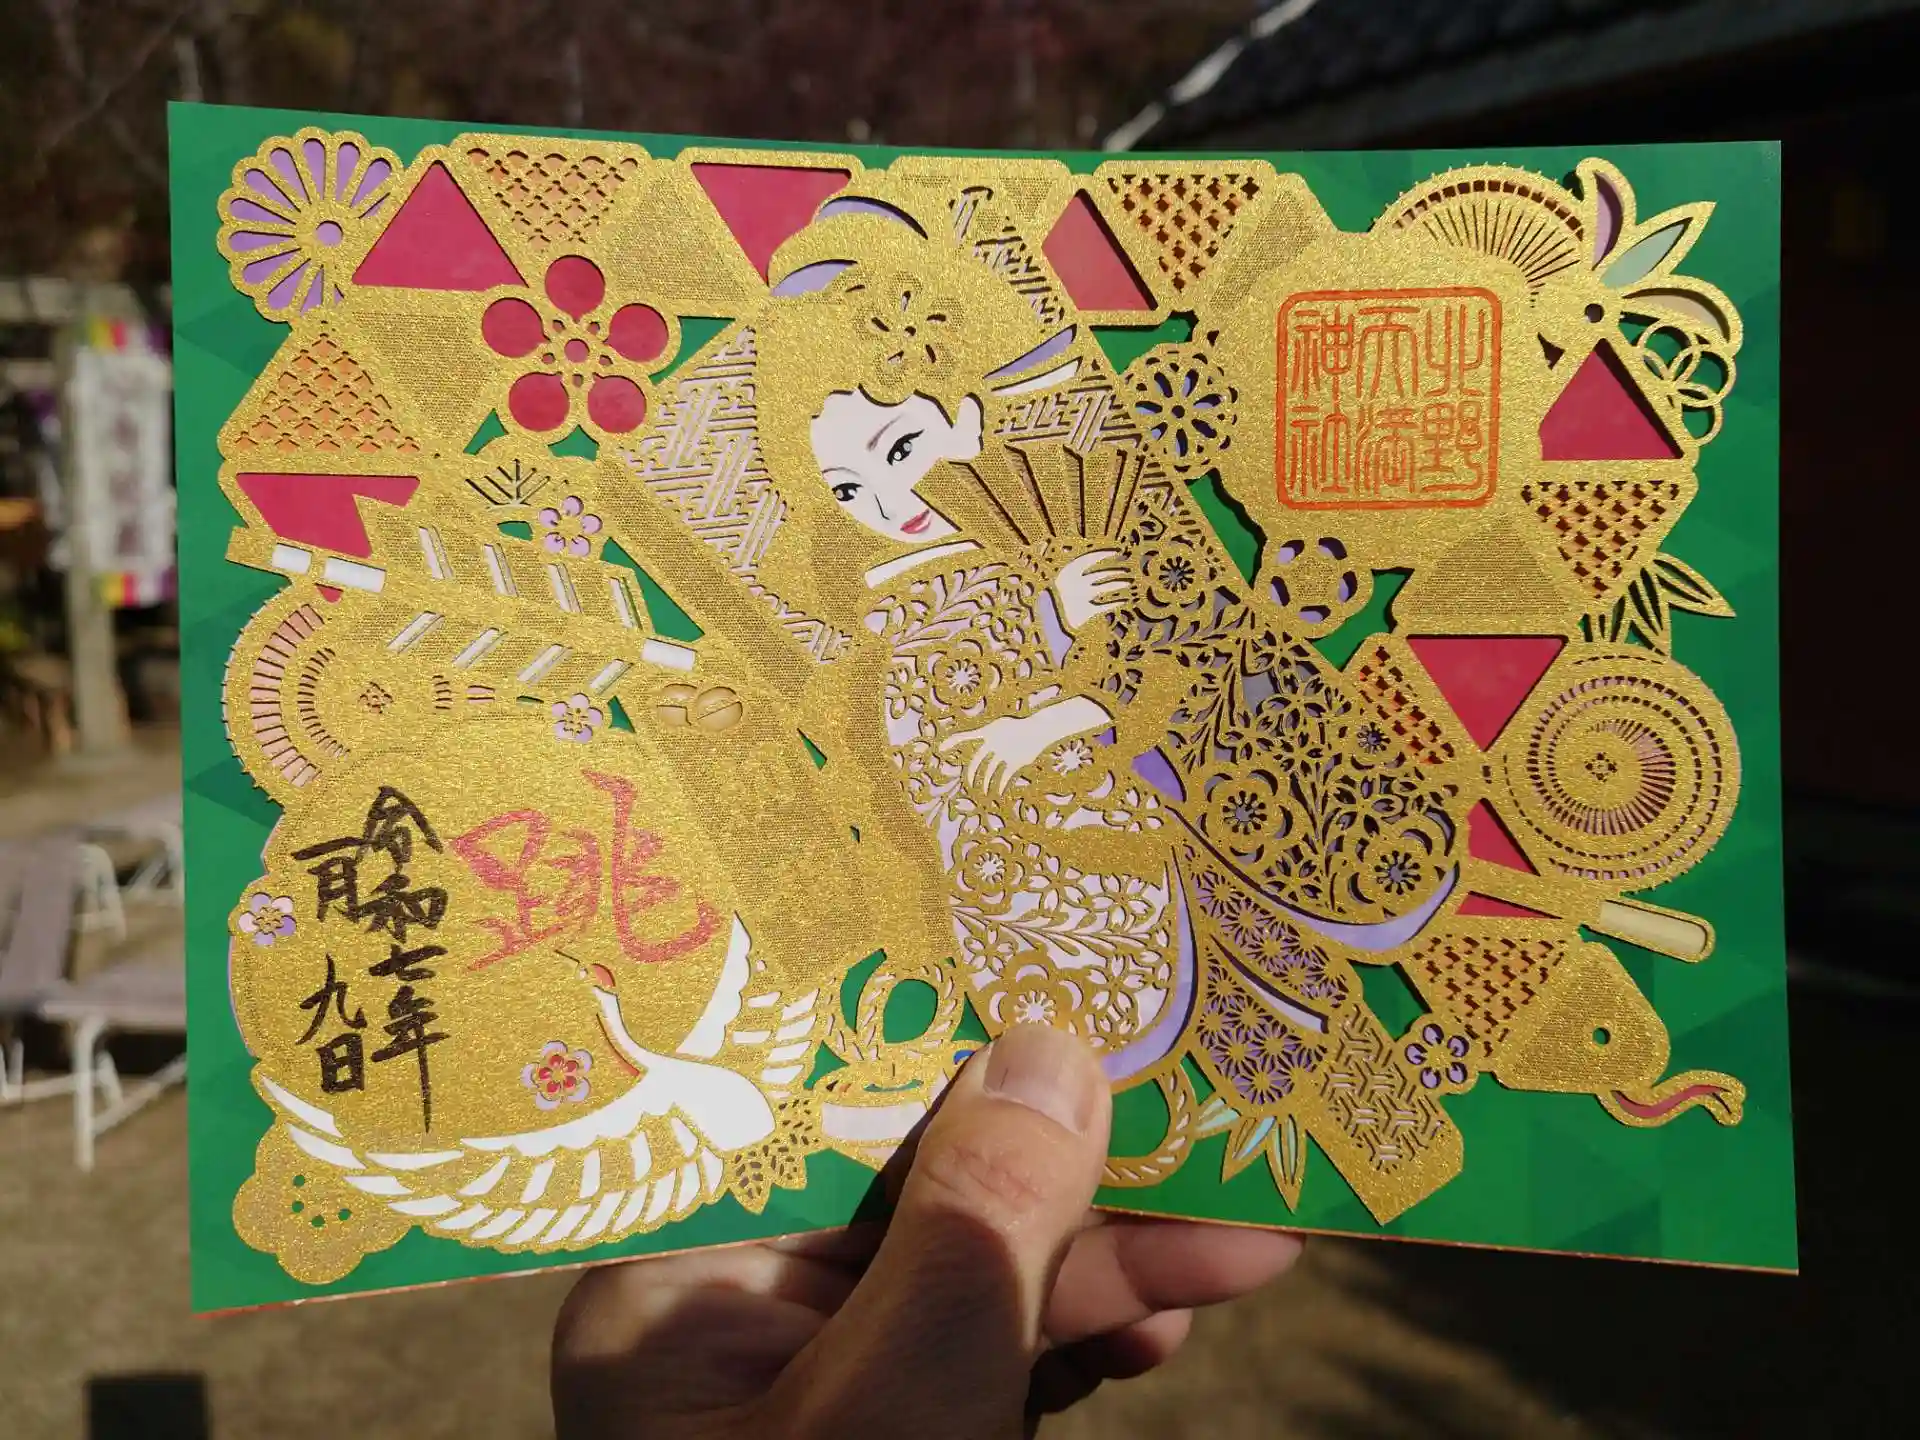 北野
天満
神社
跳
令和七年
一月九日